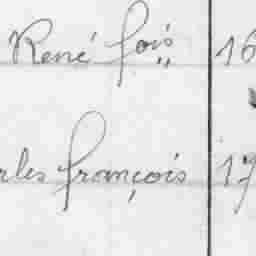 René fois 16
rles françois 17